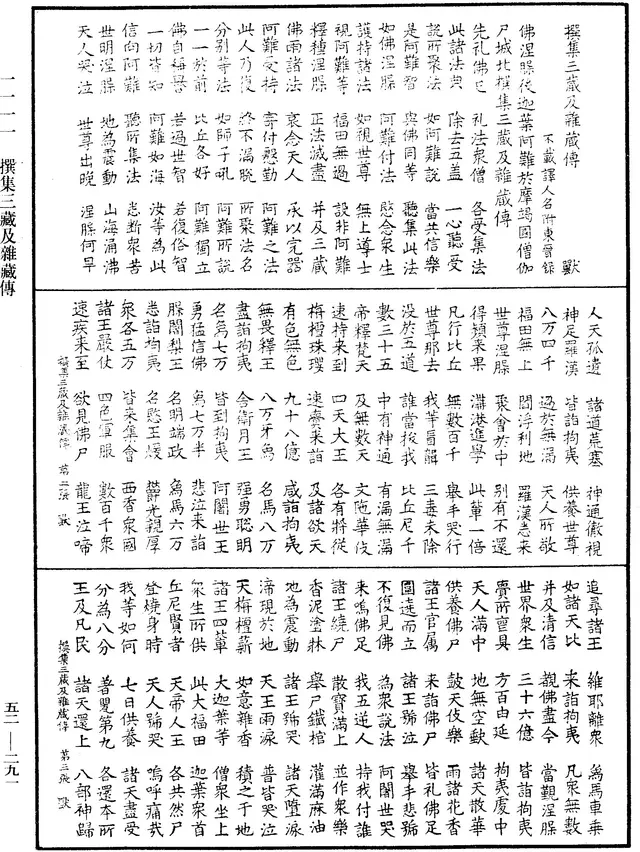 撰集三藏及雜藏傳 獸
不載譯人名附東晉錄
佛涅槃後迦葉阿難於摩竭國僧伽
尸城北撰集三藏及雜藏傳
先礼佛足 礼法衆僧 各受集法
此諸法典 除去五蓋 一心聽受
說所聚法 如阿難說 當共信樂
是阿難智 與佛同等 聽集此法
如佛涅槃 阿難付法 愍念衆生
護持諸法 如視世尊 無上導士
視阿難等 福田無過 設非阿難
釋種涅槃 正法滅盡 并及三藏
佛雨諸法 哀念天人 承以完器
阿難受持 寄付慇懃 阿難之法
此人乃復 終不漏脫 所聚法名
分別等法 如師子吼 阿難所說
一一於前 比丘各好 阿難獨立
佛自稱譽 若過世智 若復俗智
一切皆知 阿難如海 汝等為此
信向阿難 聽所集法 悉斷衆苦
世明涅槃 地為震動 山海涌沸
天人哭泣 世尊出晚 涅槃何早
人天孤遺 諸道荒塞 神通徹視
神足羅漢 皆詣拘夷 供養世尊
八万四千 過於無漏 天人所敬
福田無上 閻浮利地 羅漢悉来
世尊涅槃 聚會於中 別有不還
得頻来果 溝港進學 此輩一倍
凡行比丘 無數百千 舉手哭行
世尊那去 我等冒翳 三毒未除
没於五道 誰當救我 比丘尼千
數三十五 中有神通 有漏無漏
帝釋梵天 及無數天 文陁華伎
速持来到 四天大王 各有將從
栴檀珠璞 速齎来詣 及諸欲天
有色無色 九十八億 咸詣拘夷
無畏釋王 八万牙象 名馬八万
盡詣拘夷 舍衛月王 强勇聰明
名象七万 皆到拘夷 阿闍世王
勇猛信佛 象七万半 悲泣来詣
槃闍梨王 名明端政 象馬六万
悉詣拘夷 名慜王煖 欝光親厚
衆各五万 皆来集會 西香衆國
諸王嚴仗 四色軍服 數百千衆
速疾来至 欲見佛尸 龍王泣啼
撰集三藏及雜藏傳 第二张 獸
追尋諸王 維耶離衆 象馬車乗
如諸天比 来詣拘夷 凡衆無數
并及清信 覩佛盡今 當觀涅槃
世界衆生 三十六億 皆詣拘夷
賣所亶具 方百由延 拘夷廣中
天人滿中 地無空缺 諸天散華
供養佛尸 鼓天伎樂 雨諸花香
諸王官属 来詣佛尸 皆礼佛足
圍遶而立 諸王號泣 舉手悲號
不復見佛 為衆說法 阿闍世哭
来鳴佛足 我五逆人 持我付誰
諸王繞尸 散寶滿上 並作衆樂
香泥塗牀 舉尸鐵棺 灌滿麻油
地為震動 諸王蹄哭 諸天墮淚
渧現於地 天王雨淚 普皆哭泣
天栴檀薪 如意雜香 積之于地
諸王四輩 大迦葉等 僧衆坐上
衆生所供 此大福田 迦葉衆首
丘尼賢者 天帝人王 各共然尸
登燒身時 天人蹄哭 嗚呼痛哉
我等如何 七日供養 諸天盡受
分為八分 普曼第九 各還本所
王及凡民 諸天還上 八部神歸
撰集三藏及雜藏傳 第三张 獸
一一一一 撰集三藏及雜藏傳
五二—二九一